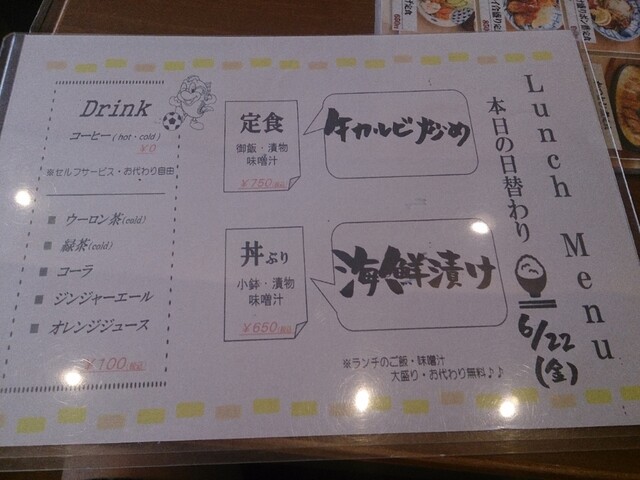 Lunch Menu
本日の日替わり
6/22
(金)
定食
御飯・漬物
味噌汁
¥750(税込)
牛カルビ炒め
丼ぶり
小鉢・漬物
味噌汁
¥650(税込)
海鮮漬け
※ランチのご飯・味噌汁
大盛り・お代わり無料♪♪
Drink
コーヒー(hot・cold)
¥0
※セルフサービス・お代わり自由
■ ウーロン茶(cold)
■ 緑茶(cold)
■ コーラ
■ ジンジャーエール
■ オレンジジュース
¥100(税込)